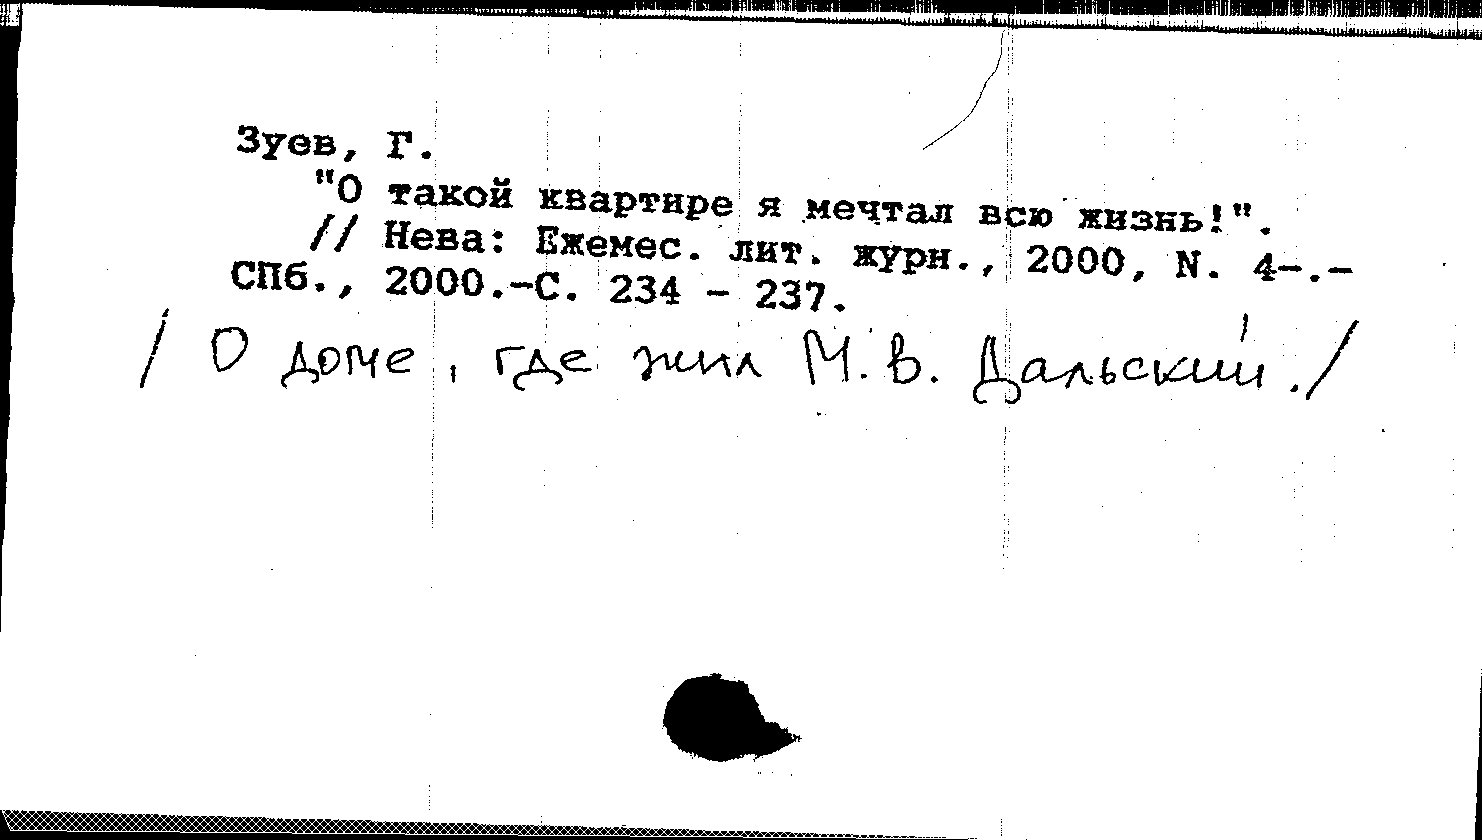 Зуев, Г.
"О такой квартире я мечтал всю жизнь!".
// Нева: Ежемес. лит. журн., 2000, N. 4-.-
СПб., 2000.-С. 234 - 237.
/ О доме, где жил М.В. Дальский./